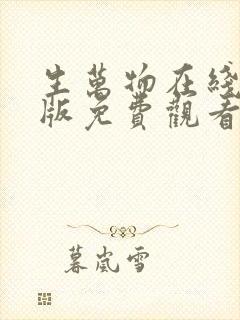 生萬物在綫
版免費觀看
暮嵐雪